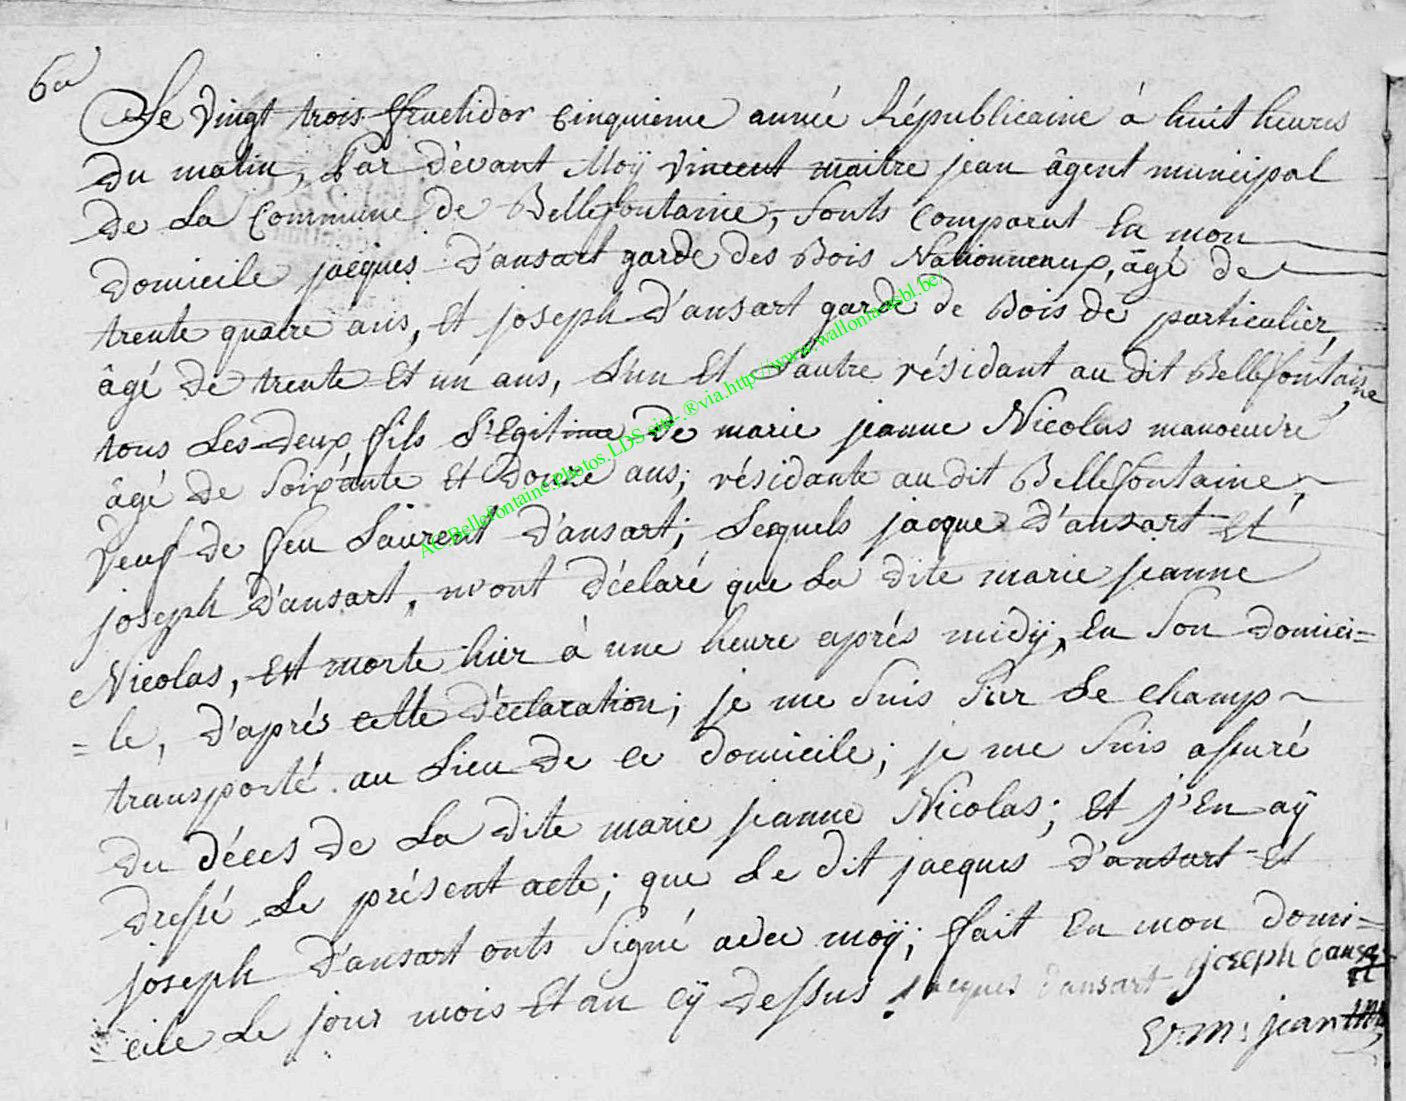 6e
Le vingt trois fructidor cinquieme année Républicaine à huit heures
du matin, Par dévant Moÿ vincent maitre jean âgent municipal
de La Commune de Béllefontaine, sonts comparut En mon
domicile jacques d'ansart garde des Bois Nationneaux, âgé de
trente quatre ans, Et joseph D'ansart garde de Bois de particulier,
âgé de trente Et un ans, L'un Et L'autre résidant au dit Bellefontaine,
tous Les deux fils L'Egitime de marie jeanne Nicolas manoeuvre
âgé de soixante Et Douze ans; résidante au dit Bellefontaine,
veuf de feu Laurent D'ansart; Lesquels jacque d'ansart Et
joseph D'ansart, m'ont déclaré que La dite marie jeanne
Nicolas, Est morte hier à une heure aprés midÿ, En Son domici=
=le, D'aprés cette déclaration; je me suis sur Le champ
transporté au Lieu de ce domicile; je me suis assuré
du déces de La dite marie jeanne Nicolas; Et j'En aÿ
dressé Le présent acte; que Le dit jacques d'ansart Et
joseph D'ansart onts Signé avec moÿ; fait En mon domi=
cile Le jour mois Et an cÿ dessus. jacques dansart joseph dansart
V: m: jean
AC.Bellefontaine.photos.LDS.site-.®via.http://www.wallonia.asbl.be/